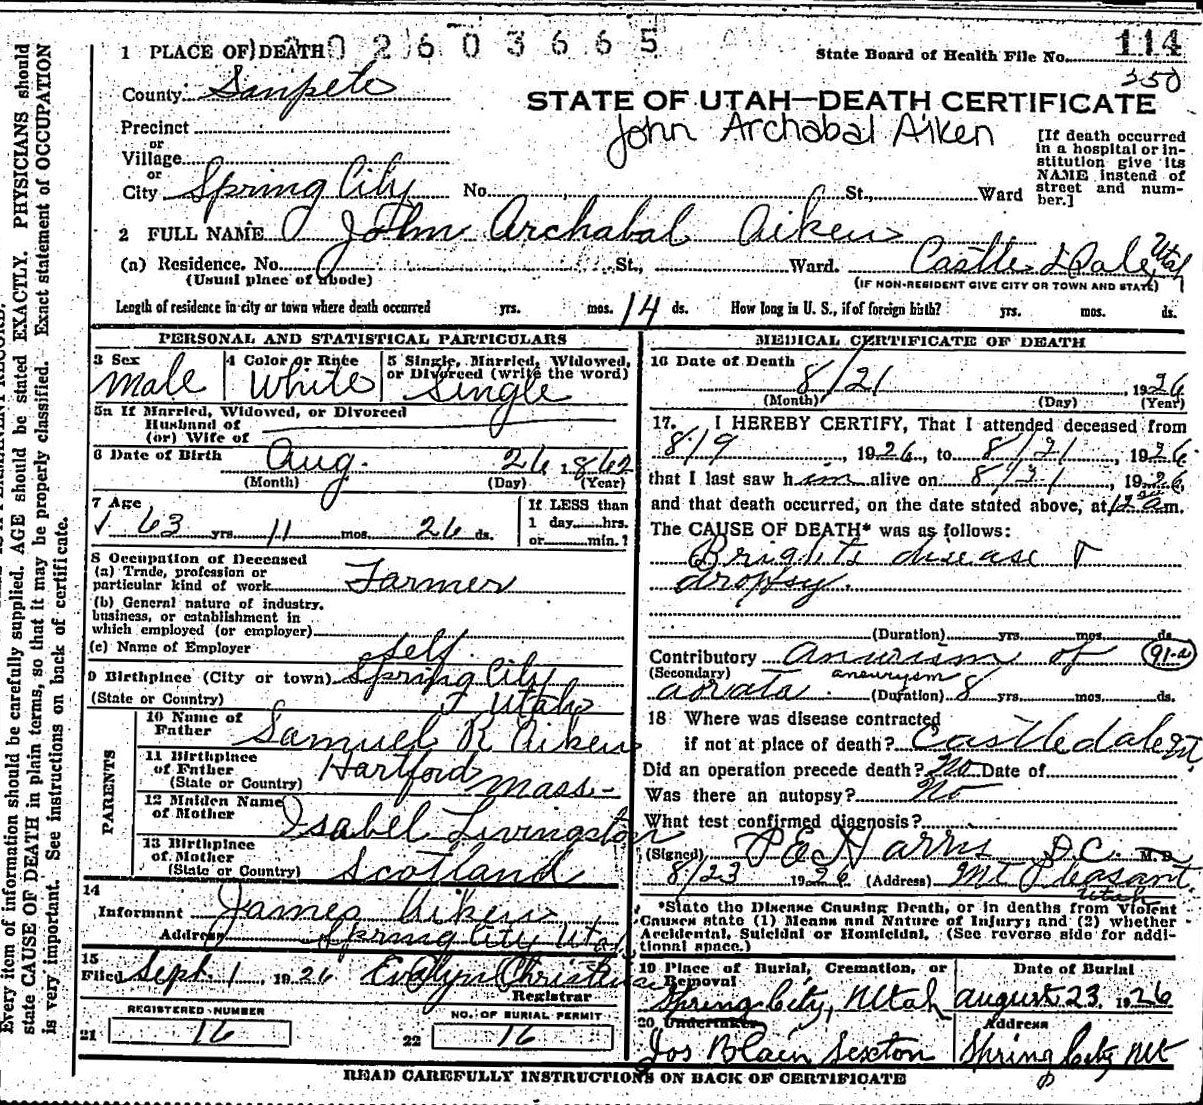 1 PLACE OF DEATH 2 0 2 6 0 3 6 6 5
State Board of Health File No. 114
350
County Sanpete
STATE OF UTAH—DEATH CERTIFICATE
John Archabal Aiken
Precinct
or
Village
or
City Spring City No. St., Ward
[If death occurred
in a hospital or in-
stitution give its
NAME instead of
street and num-
ber.]
2 FULL NAME John Archabal Aiken
(a) Residence. No. St., Ward. Castle Dale, Utah
(Usual place of abode)
(IF NON-RESIDENT GIVE CITY OR TOWN AND STATE)
Length of residence in city or town where death occurred yrs. mos. 14 ds. How long in U. S., if of foreign birth? yrs. mos. ds.
PERSONAL AND STATISTICAL PARTICULARS
3 Sex
Male
4 Color or Race
White
5 Single, Married, Widowed,
or Divorced (write the word)
Single
5a If Married, Widowed, or Divorced
Husband of
(or) Wife of
6 Date of Birth Aug. 26 1862
(Month) (Day) (Year)
7 Age
63 yrs. 11 mos. 26 ds.
If LESS than
1 day hrs.
or min.?
8 Occupation of Deceased
(a) Trade, profession or
particular kind of work Farmer
(b) General nature of industry,
business, or establishment in
which employed (or employer)
(c) Name of Employer self
9 Birthplace (City or town) Spring City
(State or Country) Utah
PARENTS
10 Name of
Father Samuel R Aiken
11 Birthplace
of Father Hartford Mass-
(State or Country)
12 Maiden Name
of Mother Isabel Livingston
13 Birthplace
of Mother
(State or Country) Scotland
14
Informant James Aiken
Address Spring City Utah
15
Filed Sept. 1, 1926 Evalyn Christensen
Registrar
REGISTERED NUMBER
21 16
NO. OF BURIAL PERMIT
22 16
MEDICAL CERTIFICATE OF DEATH
16 Date of Death
8/21 1926
(Month) (Day) (Year)
17. I HEREBY CERTIFY, That I attended deceased from
8/9, 1926, to 8/21, 1926
that I last saw him alive on 8/21, 1926,
and that death occurred, on the date stated above, at 12 a m.
The CAUSE OF DEATH* was as follows:
Brights disease &
dropsy.
(Duration) yrs. mos. ds.
Contributory anurism of 91-a
(Secondary) aneurysm
aorata. (Duration) 8 yrs. mos. ds.
18 Where was disease contracted
if not at place of death? Castledale Ut.
Did an operation precede death? No Date of
Was there an autopsy? No
What test confirmed diagnosis?
(Signed) P E Harns D.C. M.D.
8/23 1926 (Address) Mt Pleasant,
Utah
*State the Disease Causing Death, or in deaths from Violent
Causes state (1) Means and Nature of Injury; and (2) whether
Accidental, Suicidal or Homicidal. (See reverse side for addi-
tional space.)
19 Place of Burial, Cremation, or
Removal
Spring City, Utah
Date of Burial
August 23, 1926
20 Undertaker
Jos Blain Sexton
Address
Spring City Ut
READ CAREFULLY INSTRUCTIONS ON BACK OF CERTIFICATE
Every item of information should be carefully supplied. AGE should be stated EXACTLY. PHYSICIANS should
state CAUSE OF DEATH in plain terms, so that it may be properly classified. Exact statement of OCCUPATION
is very important. See instructions on back of certificate.